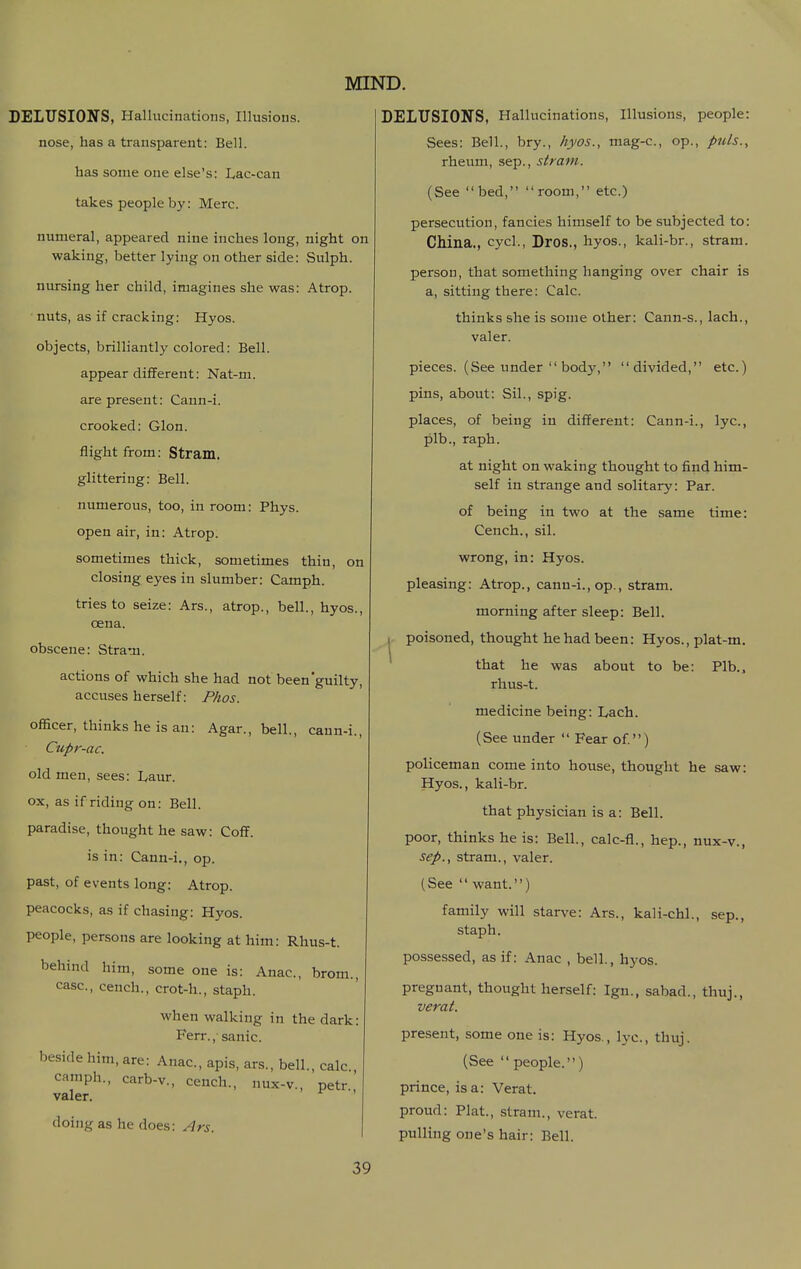 MIND.
DELUSIONS, Hallucinations, Illusions.
nose, has a transparent: Bell.
has some one else's: Lac-can
takes people by: Merc.
numeral, appeared nine inches long, night on
waking, better lying on other side: Sulph.
nursing her child, imagines she was: Atrop.
nuts, as if cracking: Hyos.
objects, brilliantly colored: Bell.
appear different: Nat-m.
are present: Cann-i.
crooked: Glon.
flight from: Stram.
glittering: Bell.
numerous, too, in room: Phys.
open air, in: Atrop.
sometimes thick, sometimes thin, on
closing eyes in slumber: Camph.
tries to seize: Ars., atrop., bell., hyos.,
œna.
obscene: Stram.
actions of which she had not been guilty,
accuses herself: Phos.
officer, thinks he is an: Agar., bell., cann-i.,
Cupr-ac.
old men, sees: Laur.
ox, as if riding on: Bell.
paradise, thought he saw: Coff.
is in: Cann-i., op.
past, of events long: Atrop.
peacocks, as if chasing: Hyos.
people, persons are looking at him: Rhus-t.
behind him, some one is: Anac., brom.,
casc., cench., crot-h., staph.
when walking in the dark:
Ferr., sanic.
beside him, are: Anac., apis, ars., bell., calc.,
camph., carb-v., cench., nux-v., petr.,
valer.
doing as he does: Ars.
DELUSIONS, Hallucinations, Illusions, people:
Sees: Bell., bry., hyos., mag-c., op., puls.,
rheum, sep., stram.
(See "bed," "room," etc.)
persecution, fancies himself to be subjected to:
China., cycl., Dros., hyos., kali-br., stram.
person, that something hanging over chair is
a, sitting there: Calc.
thinks she is some other: Cann-s., lach.,
valer.
pieces. (See under "body," "divided," etc.)
pins, about: Sil., spig.
places, of being in different: Cann-i., lyc.,
plb., raph.
at night on waking thought to find him-
self in strange and solitary: Par.
of being in two at the same time:
Cench., sil.
wrong, in: Hyos.
pleasing: Atrop., cann-i., op., stram.
morning after sleep: Bell.
poisoned, thought he had been: Hyos., plat-m.
that he was about to be: Plb.,
rhus-t.
medicine being: Lach.
(See under "Fear of.")
policeman come into house, thought he saw:
Hyos., kali-br.
that physician is a: Bell.
poor, thinks he is: Bell., calc-fl., hep., nux-v.,
sep., stram., valer.
(See "want.")
family will starve: Ars., kali-chl., sep.,
staph.
possessed, as if: Anac , bell., hyos.
pregnant, thought herself: Ign., sabad., thuj.,
verat.
present, some one is: Hyos., lyc., thuj.
(See "people.")
prince, is a: Verat.
proud: Plat., stram., verat.
pulling one's hair: Bell.
39